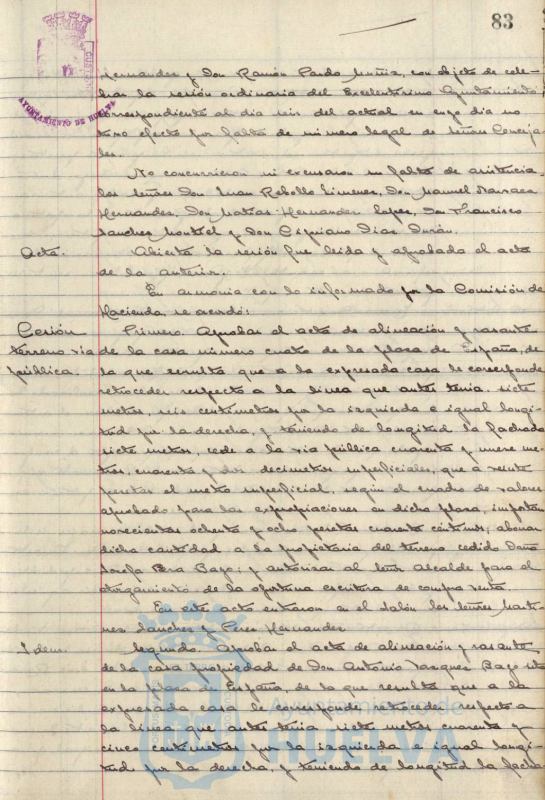 83
AYUNTAMIENTO DE HUELVA
Hernandez y Don Ramón Pardo Muñiz, con objeto de cele-
brar la sesión ordinaria del Excelentísimo Ayuntamiento
correspondiente al día seis del actual en cuyo día no
tuvo efecto por falta de número legal de señores Conceja-
les.
No concurrieron ni excusaron su falta de asistencia
los señores Don Juan Rebollo Jimenez, Don Manuel
Hernandez, Don Matias Hernandez Lopez, Don Francisco
Sanchez Montiel y Don Cipriano Diaz Durán.
Acta. Abierta la sesión fue leida y aprobada el acta
de la anterior.
En armonia con lo informado por la Comisión de
Hacienda, se acordó:
Cesión Primero. Aprobar el acta de alineación y rasante
terreno via de la casa número cuatro de la plaza de España, de
pública. la que resulta que a la expresada casa le corresponde
retroceder respecto a la linea que antes tenia, siete
metros, seis centimetros por la izquierda e igual longi-
tud por la derecha, y teniendo de longitud la fachada
siete metros, cede a la via pública cuarenta y nueve me-
tros, cuarenta y dos decimetros superficiales, que a veinte
pesetas el metro superficial, según el cuadro de valores
aprobado para las expropiaciones en dicha plaza, importan
novecientas ochenta y ocho pesetas cuarenta centimos; abonar
dicha cantidad a la propietaria del terreno cedido Doña
Josefa Bazo; y autorizar al señor Alcalde para el
otorgamiento de la oportuna escritura de compra venta
En este acto entraron en el salón los señores Marti-
nez Sanchez y Perez Hernandez
Idem. Segundo. Aprobar el acta de alineación y rasante
de la casa propiedad de Don Antonio Vazquez Bazo sita
en la plaza de España, de la que resulta que a la
expresada casa le corresponde retroceder respecto a
la linea que antes tenia siete metros cuarenta y
cinco centimetros por la izquierda e igual longi-
tud por la derecha, y teniendo de longitud la facha-
Ayuntamiento de
HUELVA